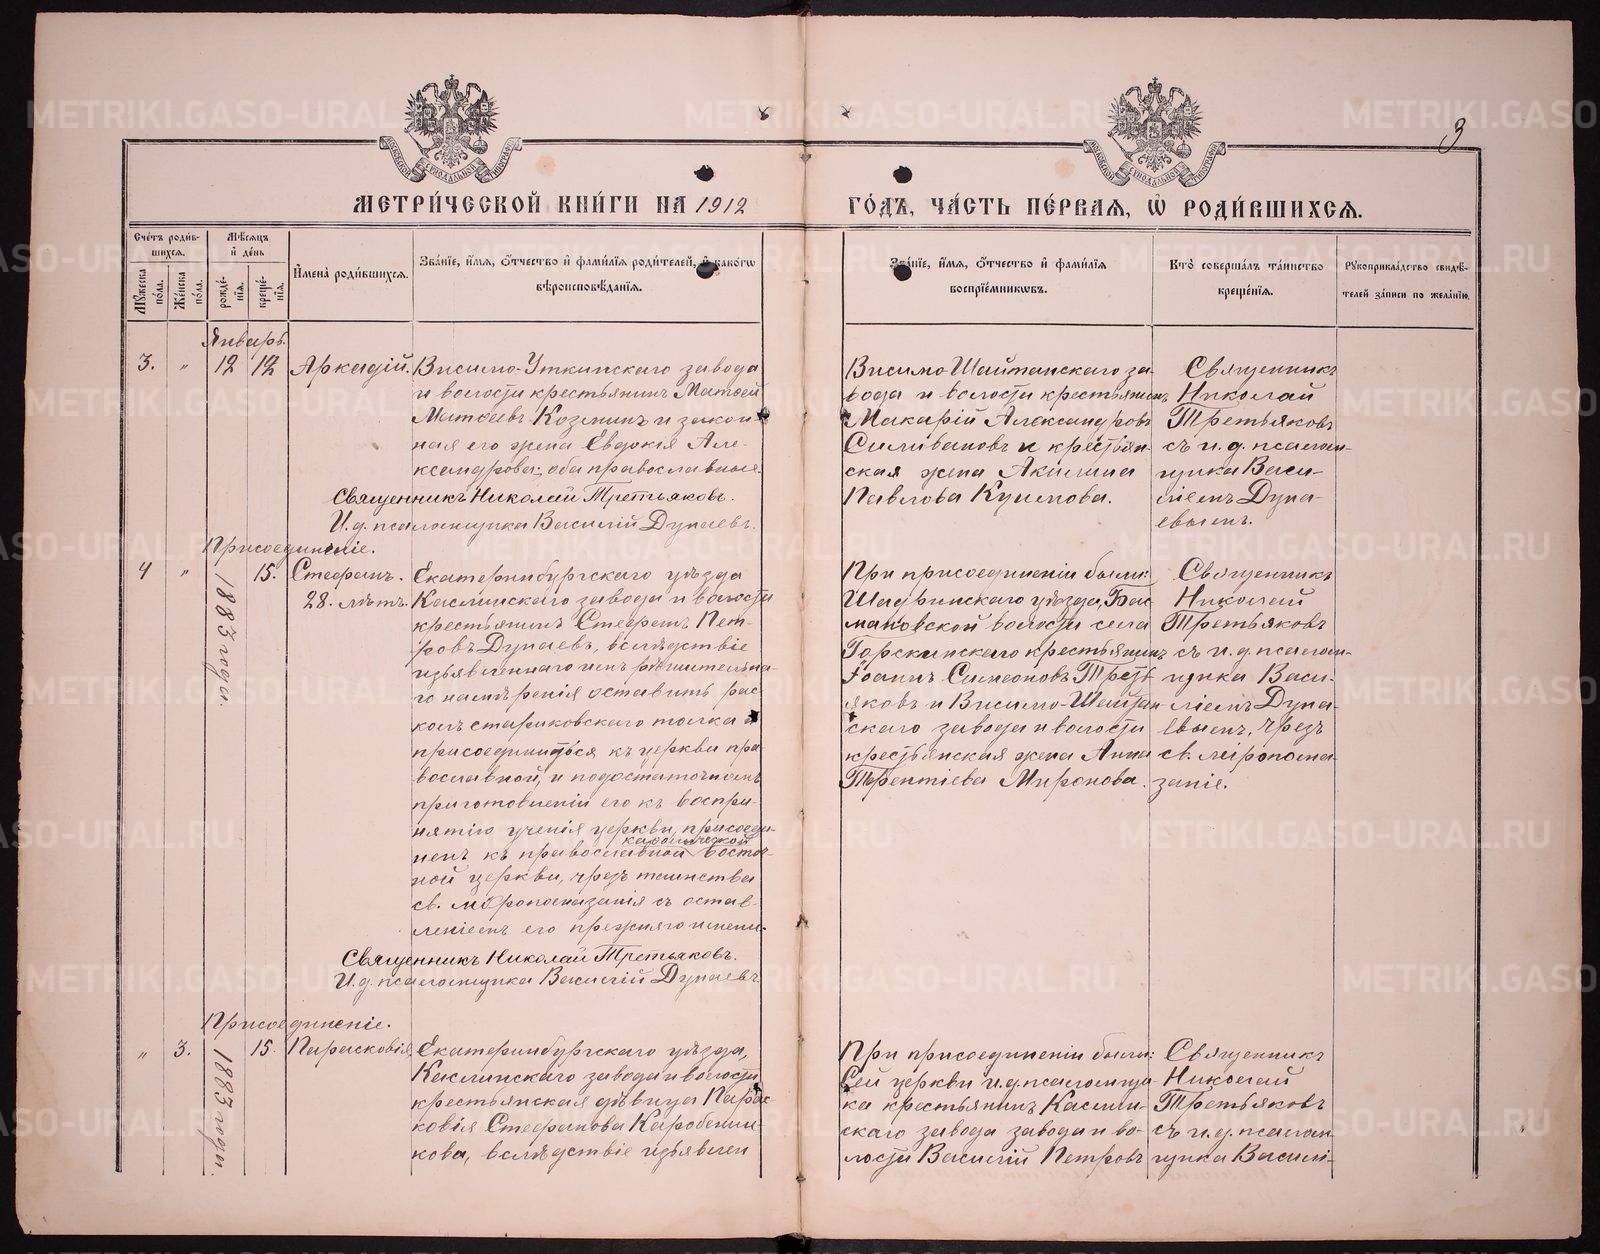 3
МЕТРИ́ЧЕСКОЙ КНИ́ГИ НА 1912 ГО́ДЪ, ЧА́СТЬ ПЕ́РВАЯ, Ѡ РОДИ́ВШИХСЯ.
Сче́тъ роди́вшихся.
Мꙋ́жеска по́ла.
Же́нска по́ла.
Мѣ́сяцъ и де́нь
рожде́нїя.
креще́нїя.
Имена̀ роди́вшихся.
Зва́нїе, и́мя, о́тчество и фами́лїя роди́телей, и како́гѡ вѣроисповѣ́данїя.
Зва́нїе, и́мя, о́тчество и фами́лїя воспрїе́мникѡвъ.
Кто̀ соверша́лъ та́инство креще́нїя.
Рꙋкоприкла́дство свидѣ́телей за́писи по жела́нїю.
Январь.
3. " 12 12 Аркадій.
Висимо-Уткинскаго завода
и волости крестьянинъ Матѳей
Матѳеевъ Козминъ и закон-
ная его жена Евдокія Але-
ксандрова; оба православные.
Священникъ Николай Третьяковъ.
И.д. псаломщика Василій Дунаевъ.
Висимо-Шайтанскаго за-
вода и волости крестьянинъ
Макарій Александровъ
Силивановъ и крестьян-
ская жена Акилина
Павлова
Священникъ
Николай
Третьяковъ
съ и.д. псалом-
щика Васи-
ліемъ Дуна-
евымъ.
Присоединеніе.
4 " 1883 года. 15. Стефанъ.
28. лѣтъ.
Екатеринбургскаго уѣзда
Каслинскаго завода и волости
крестьянинъ Стефанъ Пет-
ровъ Дунаевъ, вслѣдствіе
изъявленнаго имъ рѣшительна-
го намѣренія оставить рас-
колъ стариковскаго толка и
присоединиться къ церкви пра
вославной, и по достаточномъ
приготовленіи его къ воспри-
нятію ученія церкви, присоеди-
ненъ къ православной каѳолической Восточ-
ной церкви, чрезъ таинства
св. мѵропомазанія съ остав-
леніемъ его прежняго имени.
Священникъ Николай Третьяковъ.
И.д. псаломщика Василій Дунаевъ
При присоединеніи были:
Шадринскаго уѣзда, Бас
мановской волости села
Горскинскаго крестьянинъ
Іоаннъ Симеоновъ Треть
яковъ и Висимо-Шайтан
скаго завода и волости
крестьянская жена Анна
Терентіева Миронова.
Священникъ
Николай
Третьяковъ
съ и.д. псалом-
щика Васи-
ліемъ Дуна-
евымъ, чрезъ
св. мѵропома-
заніе.
Присоединеніе.
" 3. 1883 года. 15. Парасковія.
Екатеринбургскаго уѣзда,
Каслинскаго завода и волости
крестьянская дѣвица Парас-
ковія Стефанова Коробейни-
кова, вслѣдствіе изъявлен
При присоединеніи были:
Сей церкви и.д. псаломщи-
ка крестьянинъ Каслин-
скаго завода завода и во-
лости Василій Петровъ
Священникъ
Николай
Третьяковъ
съ и.д. псалом
щика Василі-